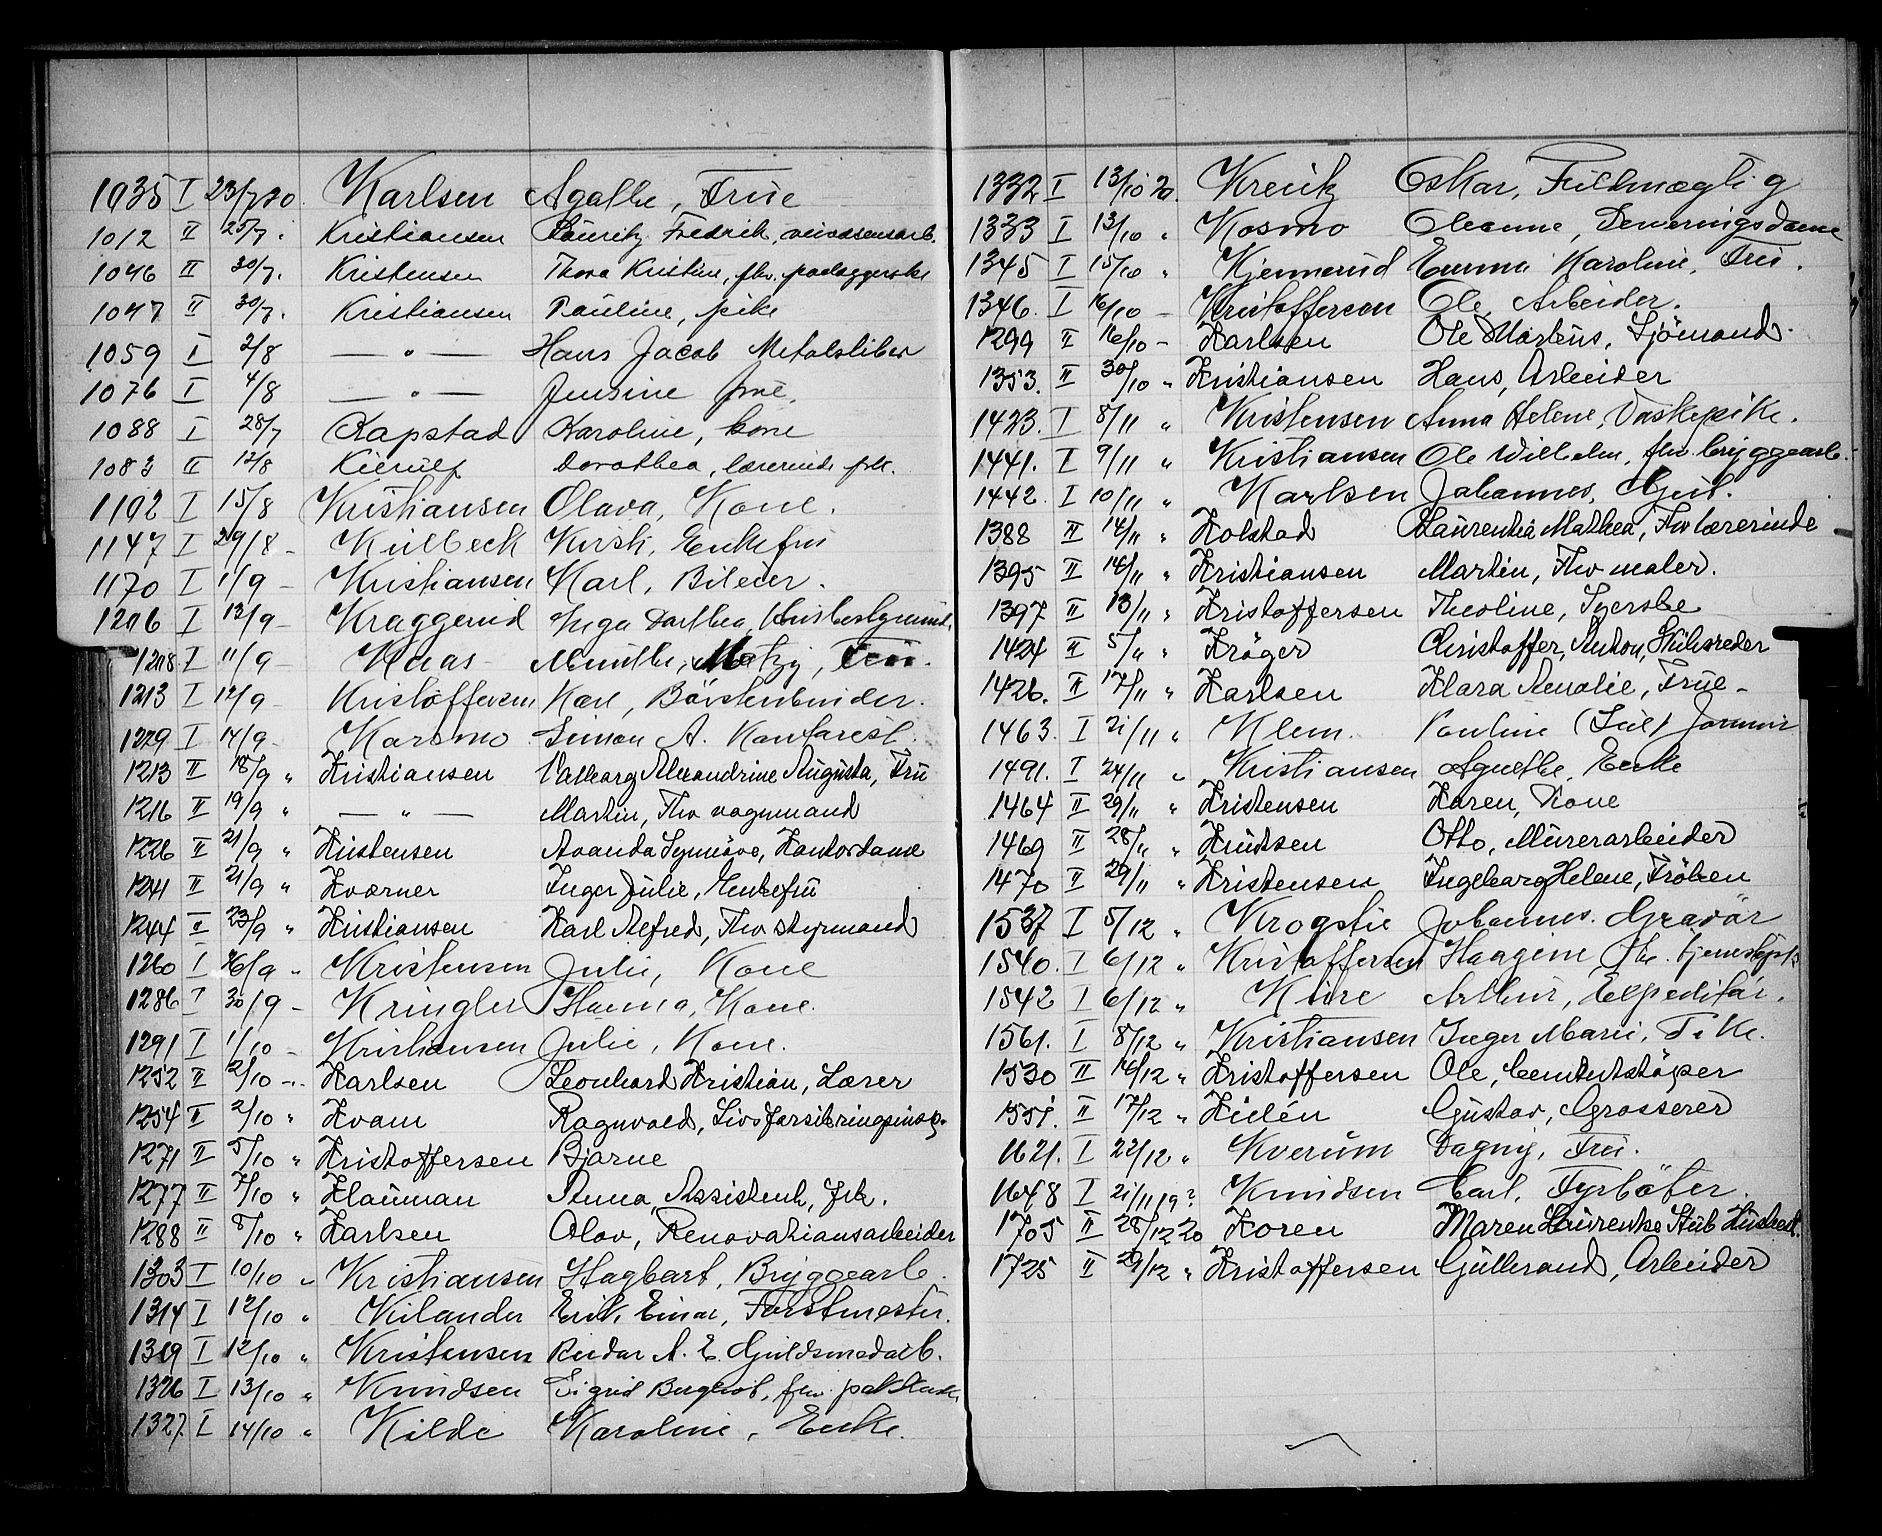 1035 I 23/7 20. Karlsen Agathe, Frue
1012 II 25/7 " Kristiansen Lauritz Fredrik,
1046 II 30/7. Kristensen Thora Kristine, fhv.
1047 II 30/7. Kristiansen Pauline, pike
1059 I 2/8 — " — Hans Jacob Metalsliber
1076 I 4/8 — " — Jensine frue.
1088 I 28/7 Kapstad Karoline, kone
1083 II 12/8 Kierulf Dorothea, lærerinde frk.
1102 I 15/8 Kristiansen Olava, Kone.
1147 I 29/8 - Kulbeck Enkefru
1170 I 1/9 - Kristiansen Karl, Bileier.
1206 I 13/9 - Kraggerud Inga Dorthea,
1208 I 11/9 - Kaas Fru.
1213 I 12/9 - Kristoffersen Karl, Börstenbinder.
1229 I 14/9 - Karsmo Simon A. Kontorist.
1213 II 18/9 " Kristiansen Valborg Alexandrine Augusta, Fru
1216 II 19/9 " — " — Martin, Fhv vognmand
1226 II 21/9 " Kristensen Avanda Synnöve, Kontordame
1241 II 21/9 " Kværner Inger Julie, Enkefru
1244 II 23/9 " Kristiansen Karl Alfred, Fhv styrmand
1260 I 26/9 " Kristensen Julie, Kone
1286 I 30/9 - Kringler Hanna, Kone.
1291 I 1/10 - Kristiansen Julie, Kone.
1252 II 2/10 -. Karlsen Leonhard Kristian, Lærer
1254 II 2/10 " Kvam Ragnvald, Livsforsikringsinsp.
1271 II 5/10 " Kristoffersen Bjarne
1277 II 7/10 " Klauman Anna, Assistent, frk.
1288 II 8/10 " Karlsen Olav, Renovationsarbeider
1303 I 10/10 " Kristiansen Hagbart, Bryggearb.
1314 I 12/10 " Kilander Erik Einar, Forstmester.
1319 I 12/10 " Kristensen Reidar A. E. Guldsmedarb.
1326 I 13/10 " Knudsen Sigrid fhv.
1327. I 14/10 " Kilde Karoline, Enke.
1332 I 13/10 20. Kreutz Oskar, Fuldmægtig
1333 I 13/10 " Kosmo Oleanne, Serveringsdame
1345 I 15/10 " Kjennerud Emma Karoline, Fru.
1346. I 16/10 - Kristoffersen Ole, Arbeider.
1299 II 16/10 - Karlsen Ole Martius, Sjömand.
1353. II 30/10 " Kristiansen Hans, Arbeider
1423. I 8/11 " Kristensen Anna Helene, Vaskepike.
1441. I 9/11 " Kristiansen Ole Wilhelm, fhv. bryggearb.
1442. I 10/11 " Karlsen Johannes,
1388 II 14/11 " Kolstad Laurentia Mathea, Fhv lærerinde
1395 II 16/11 " Kristiansen Martin, Fhv maler.
1397 II 13/11 " Kristoffersen Theoline, Syerske
1424 II 5/11 " Kröger Christoffer, Anton, Skibsreder
1426. II 17/11 " Karlsen Klara Amalie, Frue -
1463. I 21/11 " Klem.
1491. I 24/11 " Kristiansen Agnethe, Enke
1464 II 29/11 " Kristensen Karen, Kone
1469 II 28/11 " Knudsen Otto, Murerarbeider
1470 II 29/11 " Kristensen Ingeborg Helene, Fröken
1537 I 5/12 " Krogstie Johannes. Gravör
1540. I 6/12 " Kristoffersen Haagine
1542 I 6/12 " Kiire Arthur, Expeditör.
1561. I 8/12 " Kristiansen Inger Marie,
1530 II 16/12 " Kristoffersen Ole, Cementstöper
1551. II 17/12 " Kielén Gustav, Grosserer
1621. I 22/12 " Kverum Dagny, Fru.
1648 I 21/11 19? Knudsen Carl, Fyrböter.
1705 II 28/12 20 Koren Maren Laurentze Stub
1725 II 29/12 " Kristoffersen Gullerand, Arbeider